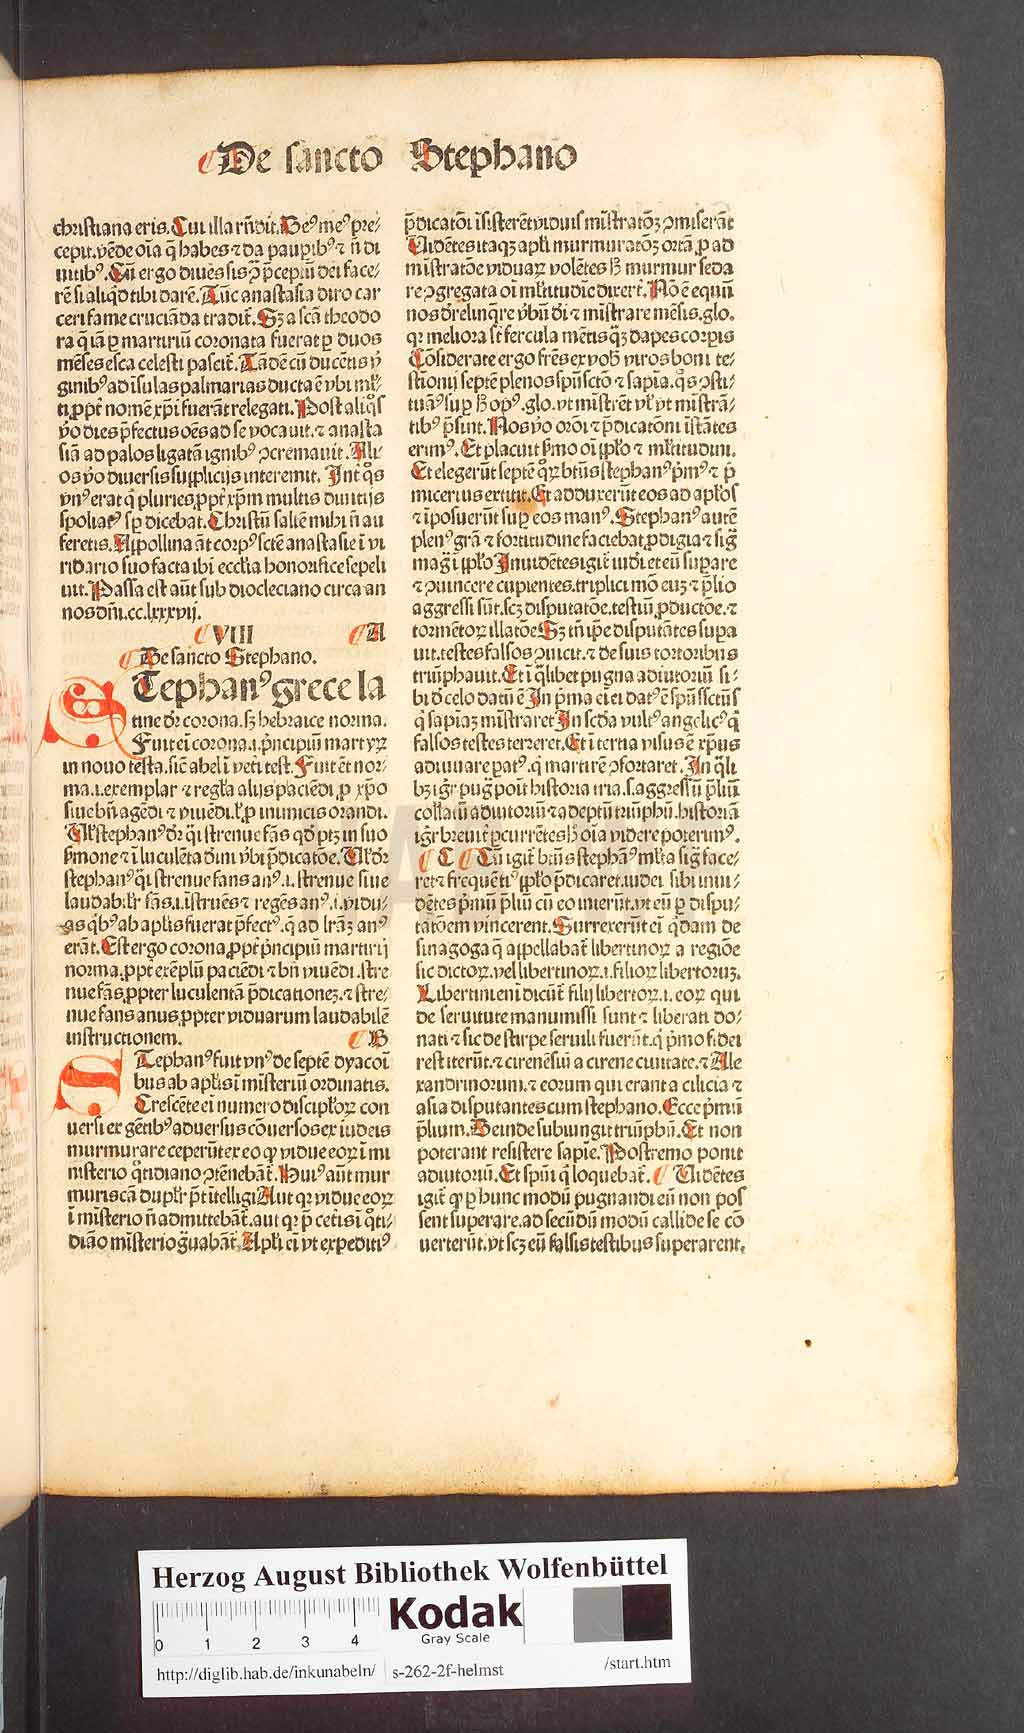 De sancto Stephano
christiana eris. Cui illa rñdit. Deꝰ meꝰ pre⸗
cepit. vēde oīa q̄ habes ⁊ da pauꝑibꝰ ⁊ ñ di
uitibꝰ. Cū ergo diues sis ↄ̨ p̄ceptū dei face⸗
rē si aliq̇d tibi darē. Tūc anastasia diro car
ceri fame crucianda tradit̄. Sʒ a scā theodo
ra q̄ iā ꝑ martiriū coronata fuerat ꝑ duos
mēses esca celesti pascit̄. Tādē cū ducētis v̄
ginibꝰ ad īsulas palmarias ducta ē vbi ml̄⸗
ti ꝓpt̄ nomē xp̄i fuerāt relegati. Post aliq̊s
v̄o dies p̄fectus oēs ad se vocauit. ⁊ anasta
siā ad palos ligatā ignibꝰ ↄcremauit. Ali⸗
os v̄o diuersis supplicijs interemit. Int̄ q̊s
vnꝰ erat q̇ pluries ꝓpt̄ xp̄m multis diuitijs
spoliatꝰ sꝑ dicebat. Christū saltē mihi ñ au
feretis. Appollina āt corpꝰ sct̄e anastasie ī vi
ridario suo facta ibi ecclīa honorifice sepeli
uit. Passa est aūt sub diocleciano circa an
nos dñi.cc.lxxxvij.
VIII A
De sancto Stephano.
STephanꝰ grece la
tine dr̄ corona. sʒ hebraice norma.
Fuit eī corona.i.p̄ncipiū martyꝝ
in nouo testa. sic̄ abel ī veti test. Fuit ēt nor⸗
ma.i.exemplar ⁊ regl̄a alijs paciēdi ꝓ xp̄o
siue bñ agēdi ⁊ viuēdi. l̄ ꝓ inimicis orandi.
Ul̄ stephanꝰ dr̄ q̇si strenue fās qd̓ ptʒ in suo
s̄mone ⁊ ī luculēta dñi v̄bi p̄dicatōe. Ul̄ dr̄
stephanꝰ q̇si strenue fans anꝰ.i. strenue siue
laudabilr̄ fās.i.īstruēs ⁊ regēs anꝰ.i.vidu⸗
as q̇bꝰ ab aplīs fuerat p̄fectꝰ.q̄ ad lr̄aʒ anꝰ
erāt. Est ergo corona ꝓpt̄ p̄ncipiū martirij
norma ꝓpt̄ exēplū paciēdi ⁊ bñ viuēdi. stre
nue fās ꝓpter luculentā p̄dicationeʒ. ⁊ stre⸗
nue fans anus ꝓpter viduarum laudabilē
instructionem. B
STephanꝰ fuit vnꝰ de septē dyacoī
bus ab apl̄is ī misteriū ordinatis.
Crescēte eī numero discipl̓oꝝ con
uersi ex gētibꝰ aduersus cōuersos ex iudeis
murmurare ceperūt ex eo ꝙ vidue eoꝝ ī mi
nisterio q̊tidiano ↄtēnebāt̄. Huiꝰ aūt mur
muris cā duplr̄ p̄t ītelligi Aut qꝛ vidue eoꝝ
ī misterio ñ admittebāt̄. aut qꝛ p̄ cet̄is ī q̊ti⸗
diāo misterio g̈uabāt̄. Apl̄i eī vt expeditiꝰ
p̄dicatōi īsisterēt viduis mīstratōʒ ↄmiserāt
Uidētes itaqʒ apl̄i murmuratōʒ ortā ꝓ ad
mīstratōe viduaꝝ volētes hʒ murmur seda
re ↄgregata oī ml̄titudīe dixer̄t. Nō ē equū
nos dr̄elinq̄re v̄bū dī ⁊ mīstrare mēsis. glo.
qꝛ meliora st̄ fercula mētis qʒ dapes corꝑis
Cōsiderate ergo fr̄es ex vob̓ viros boni te⸗
stīonij septē plenos spū sctō ⁊ sapīa. q̊s ↄsti⸗
tuāꝰ suꝑ hʒ opꝰ. glo. vt mīstrēt vl̄ vt mīstrā⸗
tibꝰ p̄sint. Nos v̄o orōi ⁊ p̄dicatōni īstātes
erimꝰ. Et placuit s̄mo oī ppl̓o ⁊ ml̄titudini.
Et elegerūt septē qͦꝝ btūs stephanꝰ p̄mꝰ ⁊ p̄
micerius extitit. Et adduxerūt eos ad apl̓os
⁊ īposuerūt suꝑ eos manꝰ. Stephanꝰ autē
plenꝰ gr̄a ⁊ fortitudine faciebat ꝓdigia ⁊ sig̈
mag̈ ī ppl̓o Inuidētes igit̄ iudi et eū suꝑare
⁊ ↄuincere cupientes. triplici mō cū eo ⁊ p̄lio
aggressi sūt. scʒ disputatōe. testiū ꝓductōe. ⁊
tormētoꝝ illatōe Sʒ tñ ip̄e disputātes supa
uit. testes falsos ↄuicit. ⁊ de suis tortoribus
triūphauit. Et ī q̇libet pugna adiutoriū si⸗
bi d̓ celo datū ē In p̄ma eī ei datꝰ ē spūs sctūs
q̇ sapiāʒ mīstraret In scd̄a vultꝰ angelicꝰ q̇
falsos testes terreret. Et ī tertia visus ē xp̄us
adiuuare ꝑatꝰ. q̇ martirē ↄfortaret. In q̇li
bʒ igr̄ pug̈ poīt historia tria. s. aggressū p̄lij
collatū adiutoriū ⁊ adeptū triūphū. historiā
igr̄ breuit̄ ꝑcurrētes hʒ oīa videre poterimꝰ.
C Cū igit̄ btūs stephāꝰ ml̄ta sig̈ face⸗
ret ⁊ frequēti ꝰ ppl̓o p̄dicaret. iudei sibi inui⸗
dētes p̄mū p̄liū cū eo inierūt. vt eū ꝑ dispu⸗
tatōem vincerent. Surrexerūt eī q̇dam de
sinagoga q̄ appellabat̄ libertinoꝝ a regiōe
sic dictoꝝ. vel libertinoꝝ.i.filioꝝ libertorūʒ.
Libertini enī dicūt̄ filij libertoꝝ.i. eoꝝ qui
de seruitute manumissi sunt ⁊ liberati do⸗
nati ⁊ sic de stirpe seruili fuerūt. q̇ p̄mo fidei
restiterūt. ⁊ cirenēsiū a cirene ciuitate. ⁊ Ale
xandrinorum. ⁊ eorum qui erant a cilicia ⁊
asia disputantes cum stephano. Ecce p̄mū
p̄lium. Deinde subiungit triūphū. Et non
poterant resistere sapīe. Postremo ponit
adiutoriū. Et spūi q̇ loquebat̄. Uidētes
igit̄ ꝙ ꝑ hunc modū pugnandi eū non pos
sent superare. ad secūdū modū callide se cō
uerterūt. vt scʒ eū falsis testibus superarent.
Herzog August Bibliothek Wolfenbüttel
0 1 2 3 4
Kodak
Gray Scale
http://diglib.hab.de/inkunabeln/ s-262-2f-helmst /start.htm